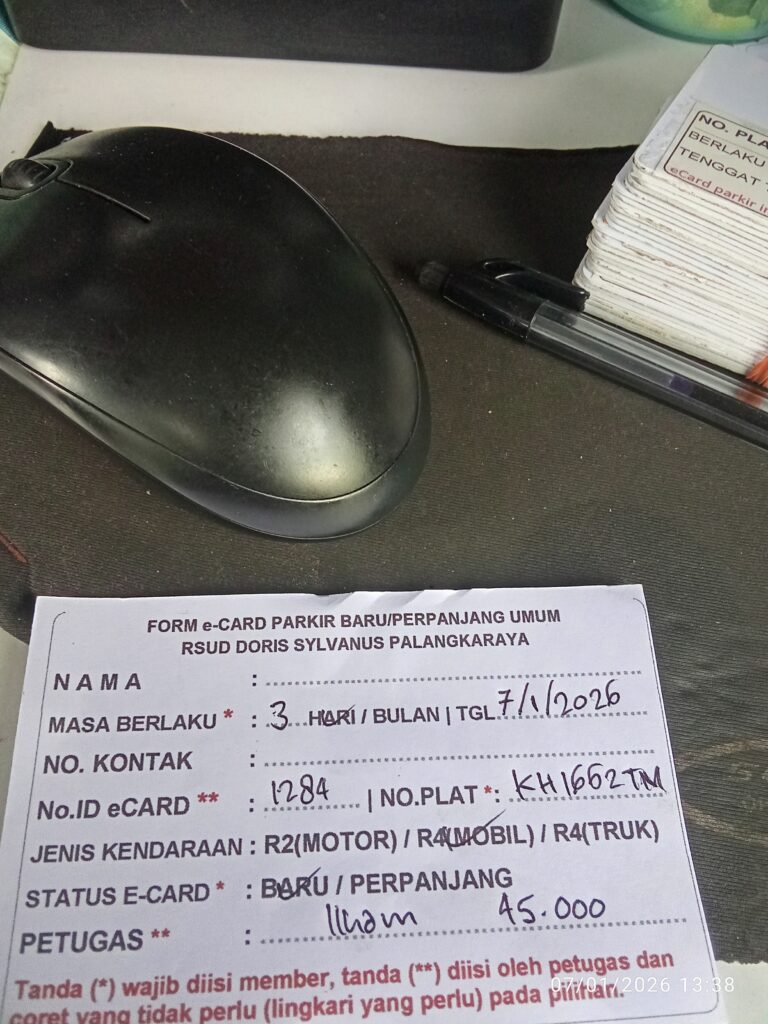 NO. PLA
BERLAKU
TENGGAT
eCard parkir in
FORM e-CARD PARKIR BARU/PERPANJANG UMUM
RSUD DORIS SYLVANUS PALANGKARAYA
NAMA :
MASA BERLAKU * : 3 HARI / BULAN | TGL 7/1/2026
NO. KONTAK :
No.ID eCARD ** : 1284 | NO.PLAT *: KH1662TM
JENIS KENDARAAN : R2(MOTOR) / R4(MOBIL) / R4(TRUK)
STATUS E-CARD * : BARU / PERPANJANG
PETUGAS ** : Ilham 45.000
Tanda (*) wajib diisi member, tanda (**) diisi oleh petugas dan
coret yang tidak perlu (lingkari yang perlu) pada pilihan.
07/01/2026 13:38